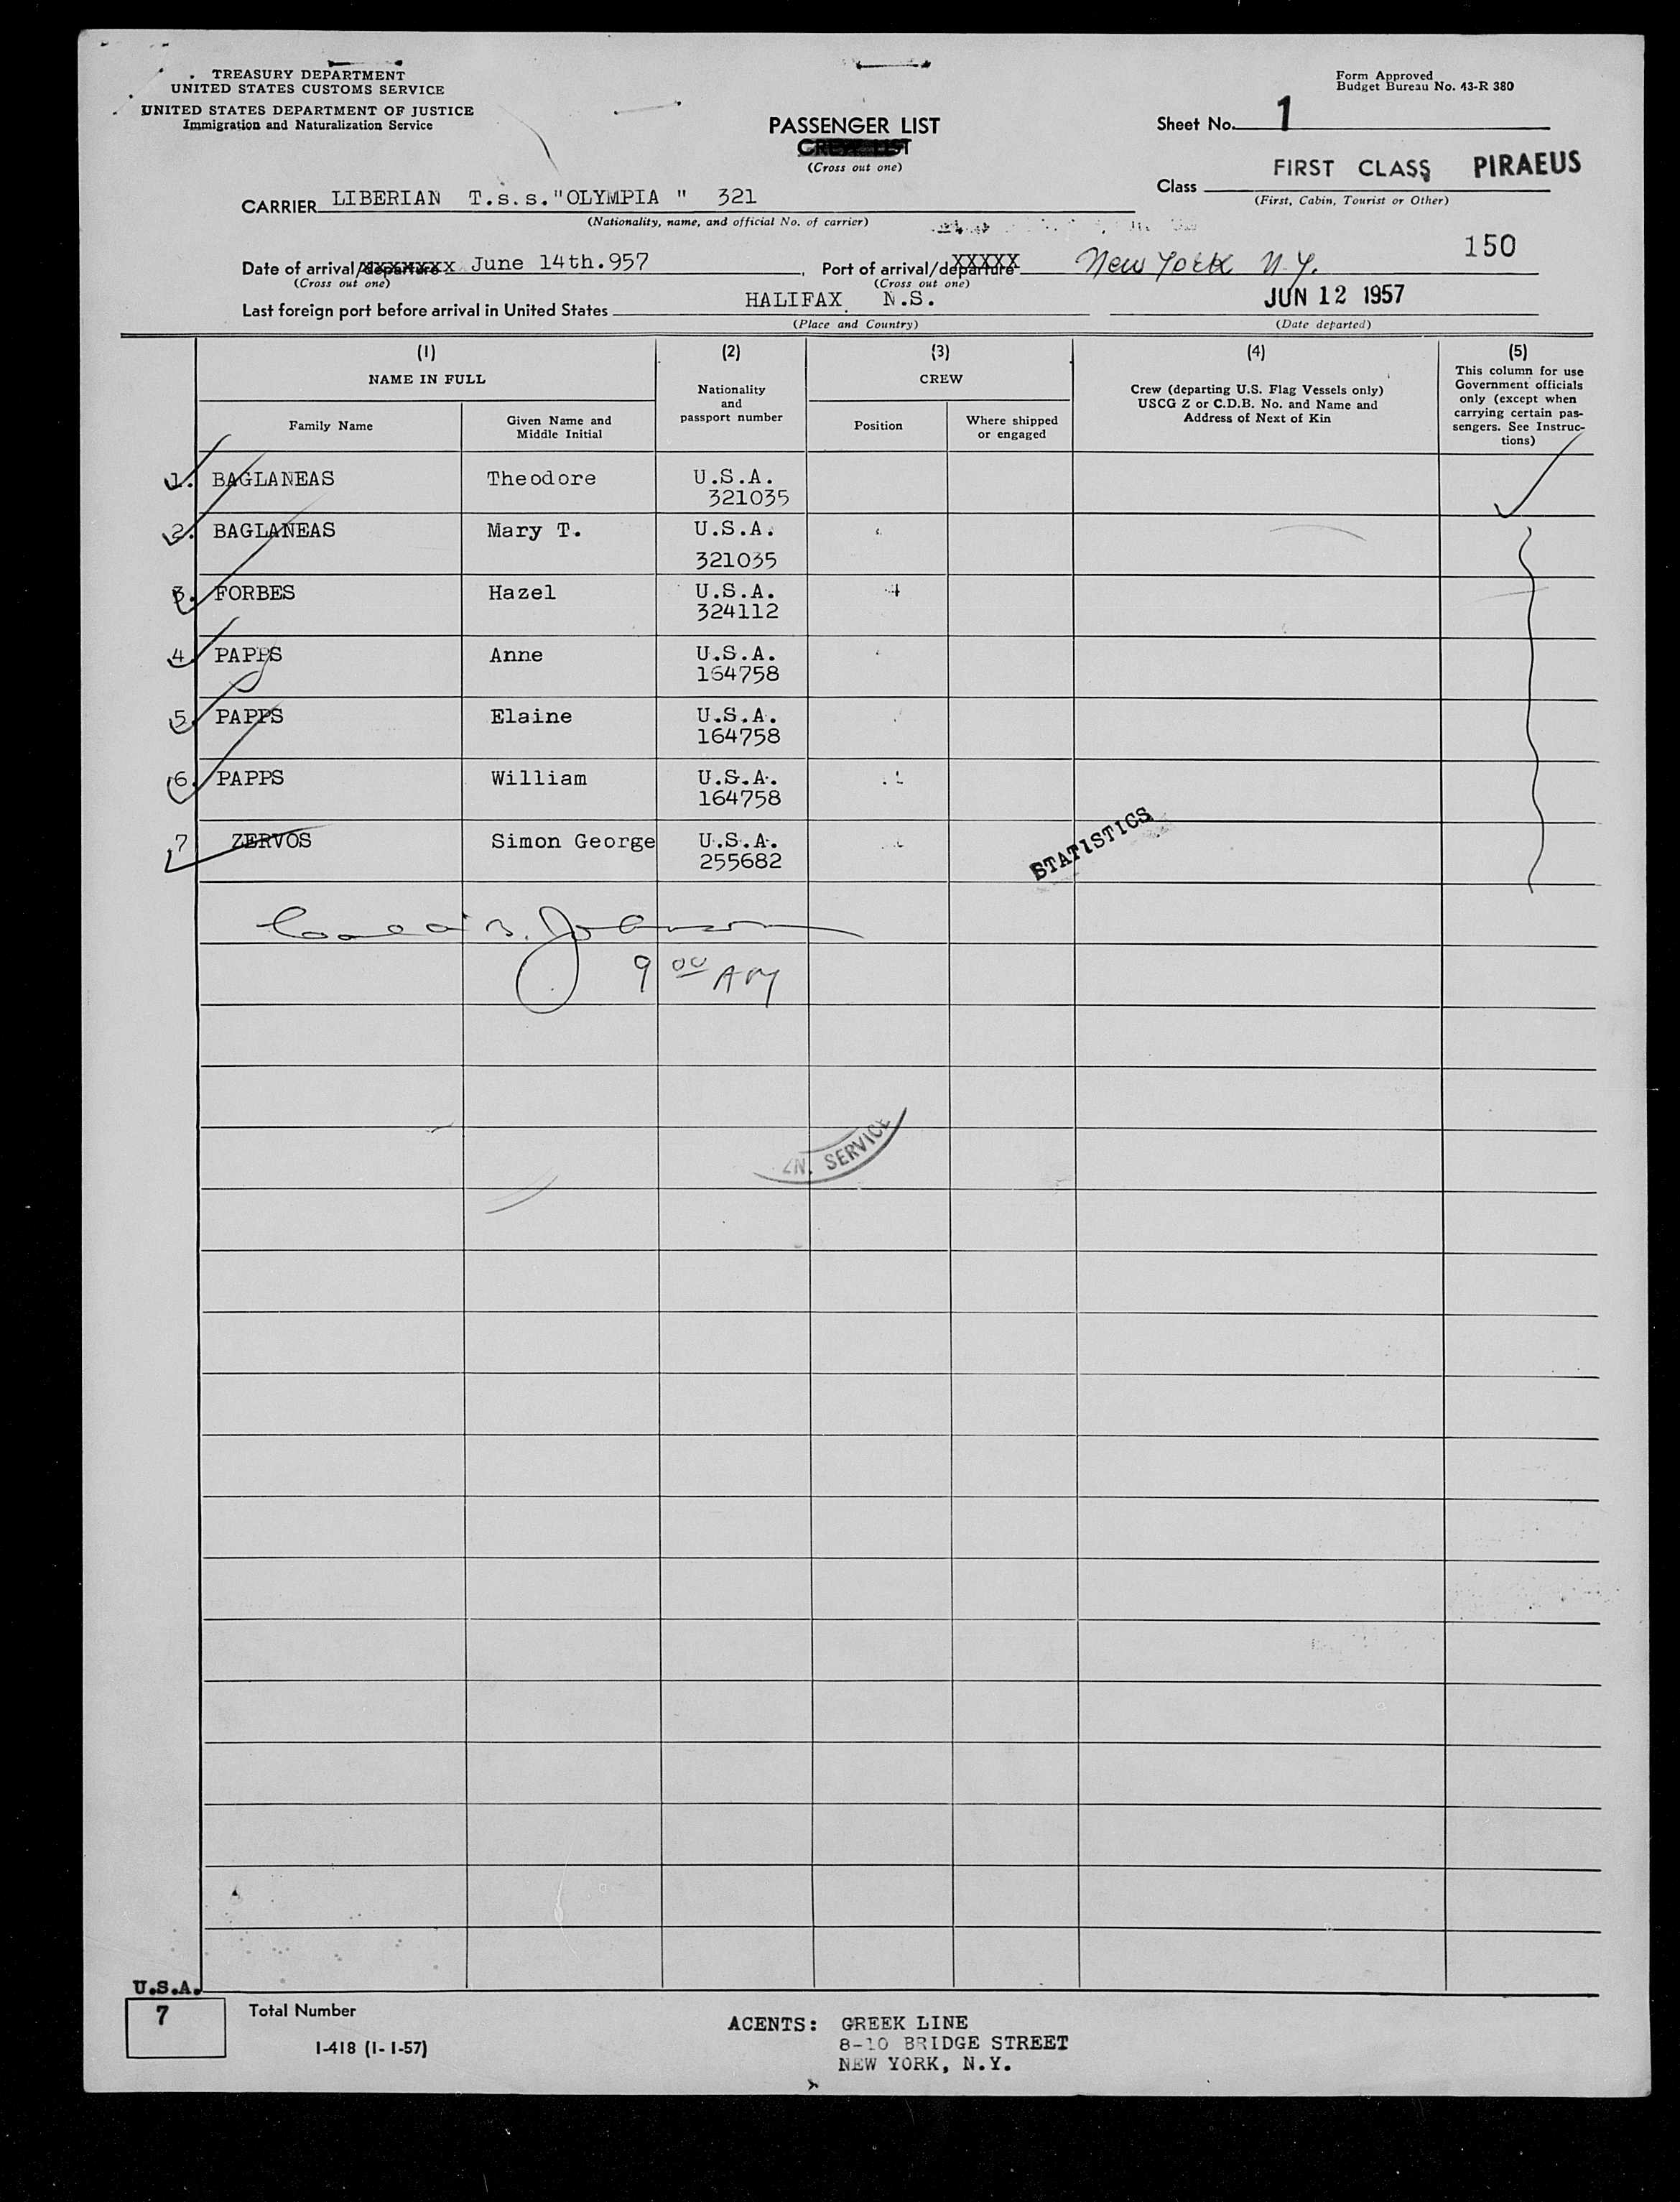 TREASURY DEPARTMENT
UNITED STATES CUSTOMS SERVICE
UNITED STATES DEPARTMENT OF JUSTICE
Immigration and Naturalization Service
Form Approved
Budget Bureau No. 43-R 380
PASSENGER LIST
CREW LIST
(Cross out one)
Sheet No. 1
Class FIRST CLASS PIRAEUS
(First, Cabin, Tourist or Other)
CARRIER LIBERIAN T.s.s."OLYMPIA " 321
(Nationality, name, and official No. of carrier)
150
Date of arrival/departure XXXXXXX June 14th.957, Port of arrival/departure XXXXX New York N.Y.
(Cross out one) (Cross out one)
Last foreign port before arrival in United States HALIFAX N.S. JUN 12 1957
(Place and Country) (Date departed)
(1) (2) (3) (4) (5)
NAME IN FULL
Family Name
Given Name and
Middle Initial
Nationality
and
passport number
CREW
Position
Where shipped
or engaged
Crew (departing U.S. Flag Vessels only)
USCG Z or C.D.B. No. and Name and
Address of Next of Kin
This column for use
Government officials
only (except when
carrying certain pas-
sengers. See Instruc-
tions)
1. BAGLANEAS Theodore U.S.A.
321035
2. BAGLANEAS Mary T. U.S.A.
321035
3. FORBES Hazel U.S.A.
324112
4. PAPPS Anne U.S.A.
164758
5. PAPPS Elaine U.S.A.
164758
6. PAPPS William U.S.A.
164758
7 ZERVOS Simon George U.S.A.
255682
STATISTICS
B. Johnson
9 00 AM
ZN. SERVICE
U.S.A.
7
Total Number
I-418 (1-1-57)
ACENTS: GREEK LINE
8-10 BRIDGE STREET
NEW YORK, N.Y.